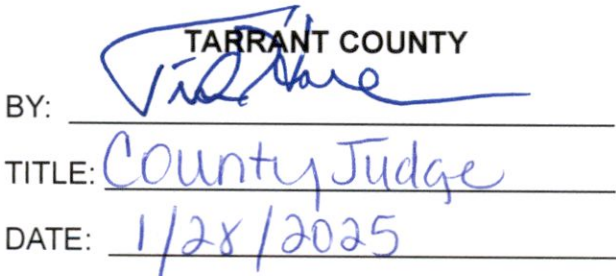 TARRANT COUNTY
BY: Tim O'Hare
TITLE: County Judge
DATE: 1/28/2025